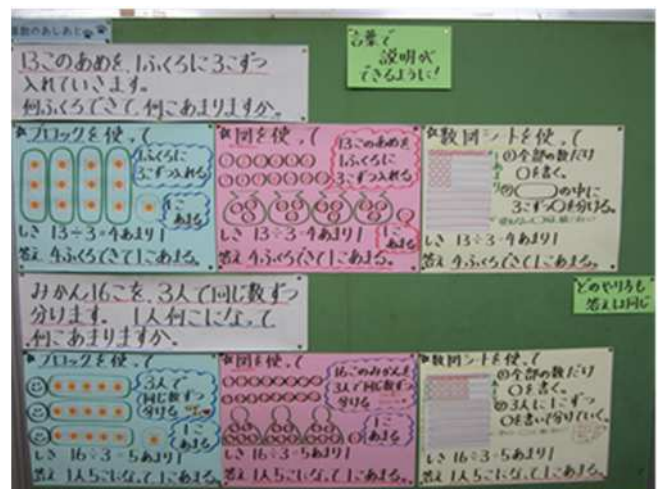 算数のあしあと
言葉で
説明が
できるように!
13このあめを、1ふくろに3こずつ
入れていきます。
何ふくろできて、何こあまりますか。
ブロックを使って
1ふくろに
3こずつ入れる
1こ
あまる
しき 13÷3=4あまり1
答え 4ふくろできて1こあまる。
図を使って
13このあめを
1ふくろに
3こずつ入れる
1こ
あまる
しき 13÷3=4あまり1
答え 4ふくろできて1こあまる。
数図シートを使って
①全部の数だけ
〇を書く。
②の中に
3こずつ〇を分ける。
しき 13÷3=4あまり1
答え 4ふくろできて1こあまる。
どのやり方も
答えは同じ
みかん16こを、3人で同じ数ずつ
分けます。1人何こになって
何こあまりますか。
ブロックを使って
3人で
同じ数ずつ
分ける
1こ
あまる
しき 16÷3=5あまり1
答え 1人5こになって1こあまる。
図を使って
16このみかんを
3人で同じ数ずつ
分ける
1こ
あまる
しき 16÷3=5あまり1
答え 1人5こになって1こあまる。
数図シートを使って
①全部の数だけ
〇を書く。
②3人に1こずつ
〇を書いて分けていく。
しき 16÷3=5あまり1
答え 1人5こになって1こあまる。